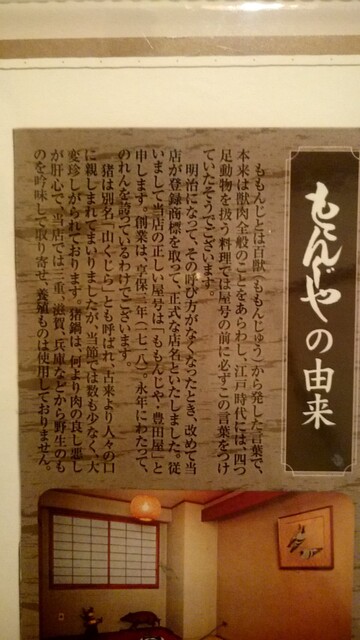 もゝんじやの由来
もゝんじとは百獣（ももんじゅう）から発した言葉で、
本来は獣肉全般のことをあらわし、江戸時代には、四つ
足動物を扱う料理では屋号の前に必ずこの言葉をつけ
ていたそうでございます。
明治になって、その呼び方がなくなったとき、改めて当
店が登録商標を取って、正式な店名といたしました。従
いまして当店の正しい屋号は「ももんじや・豊田屋」と
申します。創業は、享保三年（一七一八）永年にわたって、
のれんを誇っているわけでございます。
猪は別名「山くじら」とも呼ばれ、古来より人々の口
に親しまれてまいりましたが、当節では数も少なく、大
変珍しがられております。猪鍋は、何より肉の良し悪し
が肝心で、当店では三重、滋賀、兵庫などから野生のも
のを吟味して取り寄せ、養殖ものは使用しておりません。